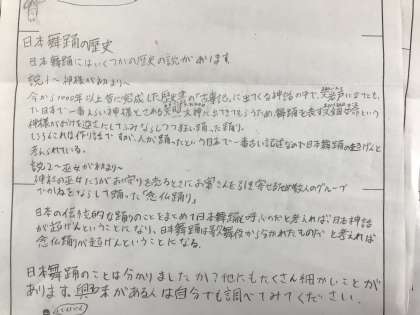 日本舞踊の歴史
日本舞踊にはいくつかの歴史の説があります
説1～神様が初まり～
今から1000年以上昔に完成した歴史書の「古事記」に出てくる神話の中で、
日本で一番えらい神様とされる 大神に出てきてもらうため、舞踊を表す という
神様がおけを逆さにして ふみならしつつ 踊った踊り。
もちろんこれは作り話ですが、人が踊ったという日本で一番古い記述なので日本舞踊の起げんと
考えられている。
説2～巫女が初まり～
神社の巫女たちがお守りを売るときにお客さんを引き寄せるため数人のグループ
でかねをならして踊った「念仏踊り」
日本の伝とう的な踊りのことをまとめて日本舞踊と呼ぶのだと考えれば日本神話
が起げんということになり、日本舞踊は歌舞伎から分かれたものだと考えれば
念仏踊りが起げんということになる。
日本舞踊のことは分かりましたか?他にもたくさん細かいことが
あります。興味がある人は自分でも調べてみてください。